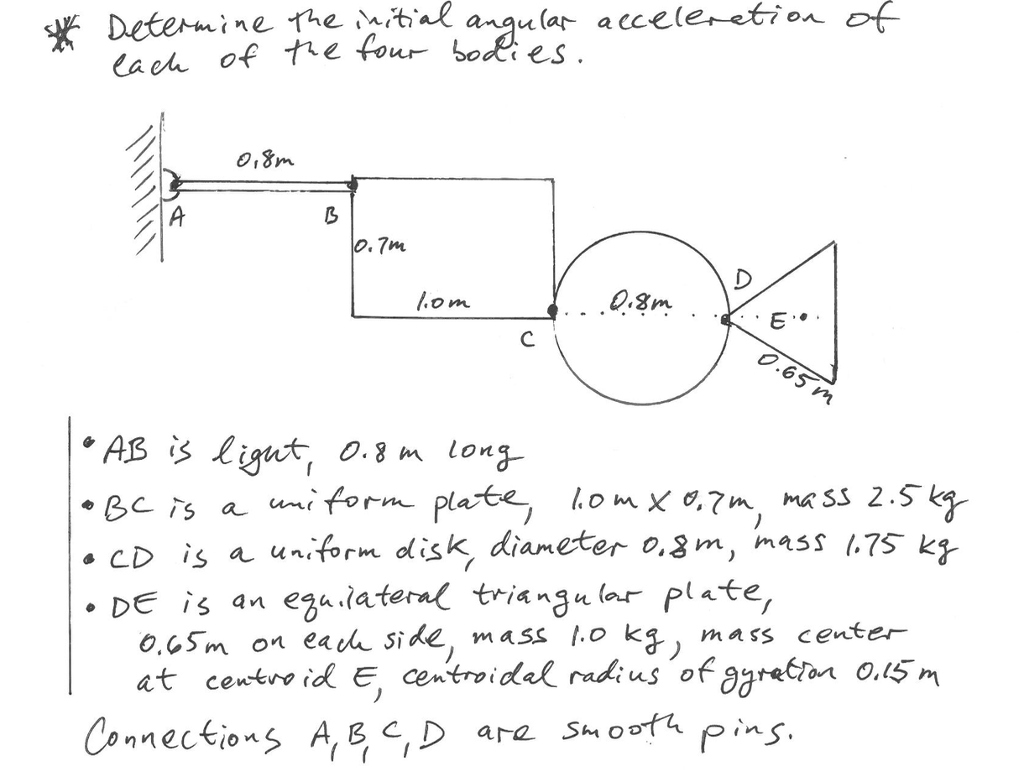 * Determine the initial angular acceleration of
each of the four bodies.
0.8m
A
B
0.7m
1.0m
C
0.8m
D
E
0.65m
• AB is light, 0.8 m long
• BC is a uniform plate, 1.0 m X 0.7m, mass 2.5 kg
• CD is a uniform disk, diameter 0.8m, mass 1.75 kg
• DE is an equilateral triangular plate,
0.65m on each side, mass 1.0 kg, mass center
at centroid E, centroidal radius of gyration 0.15 m
Connections A, B, C, D are smooth pins.